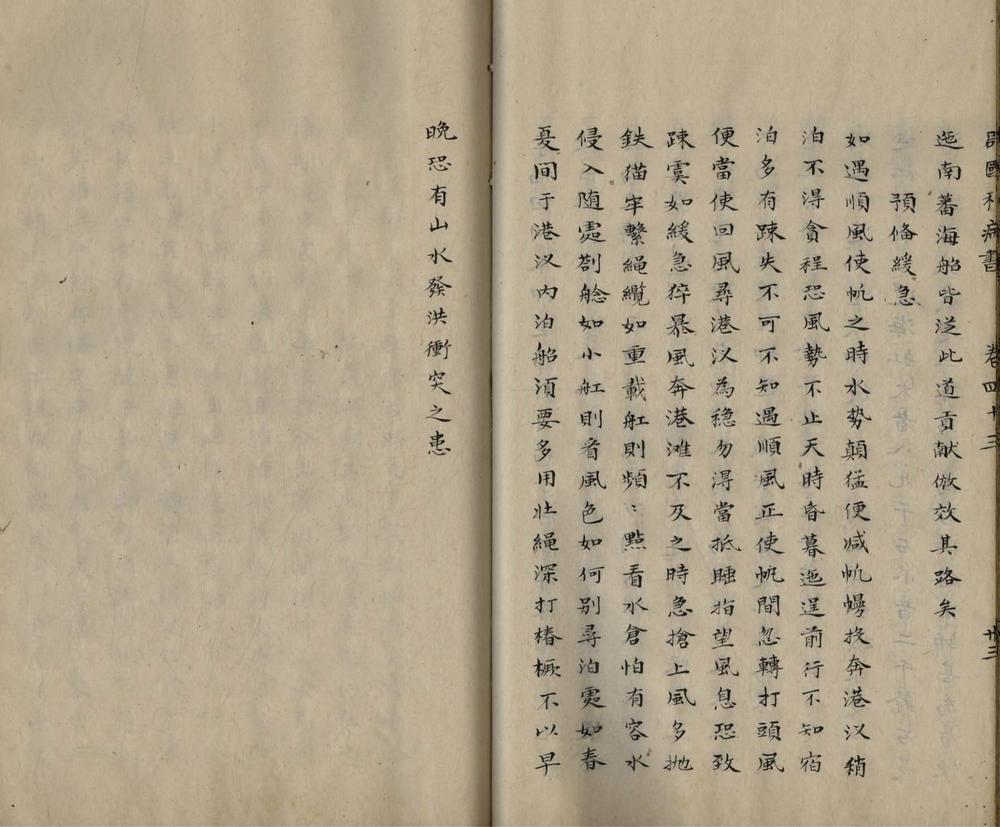 郡國利病書 卷四十三 廿三
迤南蕃海船皆泛此道貢献倣效其路矣
預偹緩急
如遇順風使帆之時水勢顛猛便减帆幔投奔港汊稍
泊不淂貪程恐風勢不止天時昏暮迤逞前行不知宿
泊多有踈失不可不知遇順風正使帆間忽轉打頭風
便當使回風尋港汊為穏勿淂當抵睡指望風息恐致
踈虞如緩急猝暴風奔港滩不及之時急搶上風多抛
鉄猫牢繫繩纜如重載舡則頻〻點看水倉怕有容水
侵入随䖏劄艌如小舡則看風色如何别尋泊䖏如春
夏间于港汊內泊船湏要多用壮繩深打樁橛不以早
晩恐有山水發洪衝突之患